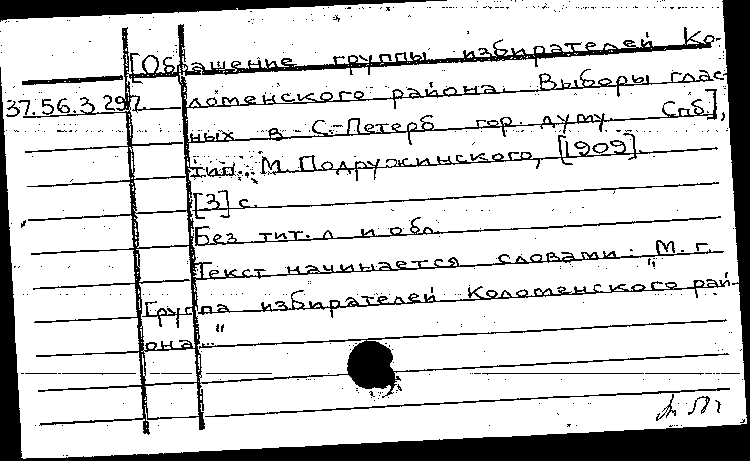 [Обращение группы избирателей Ко-
37.56.3.297. ломенского района. Выборы глас-
ных в С.-Петерб гор. думу. Спб],
тип. М. Подружинского, [1909].
[3] с.
Без тит. л и обл.
Текст начинается словами: "М. г.
Группа избирателей Коломенского рай-
она..."